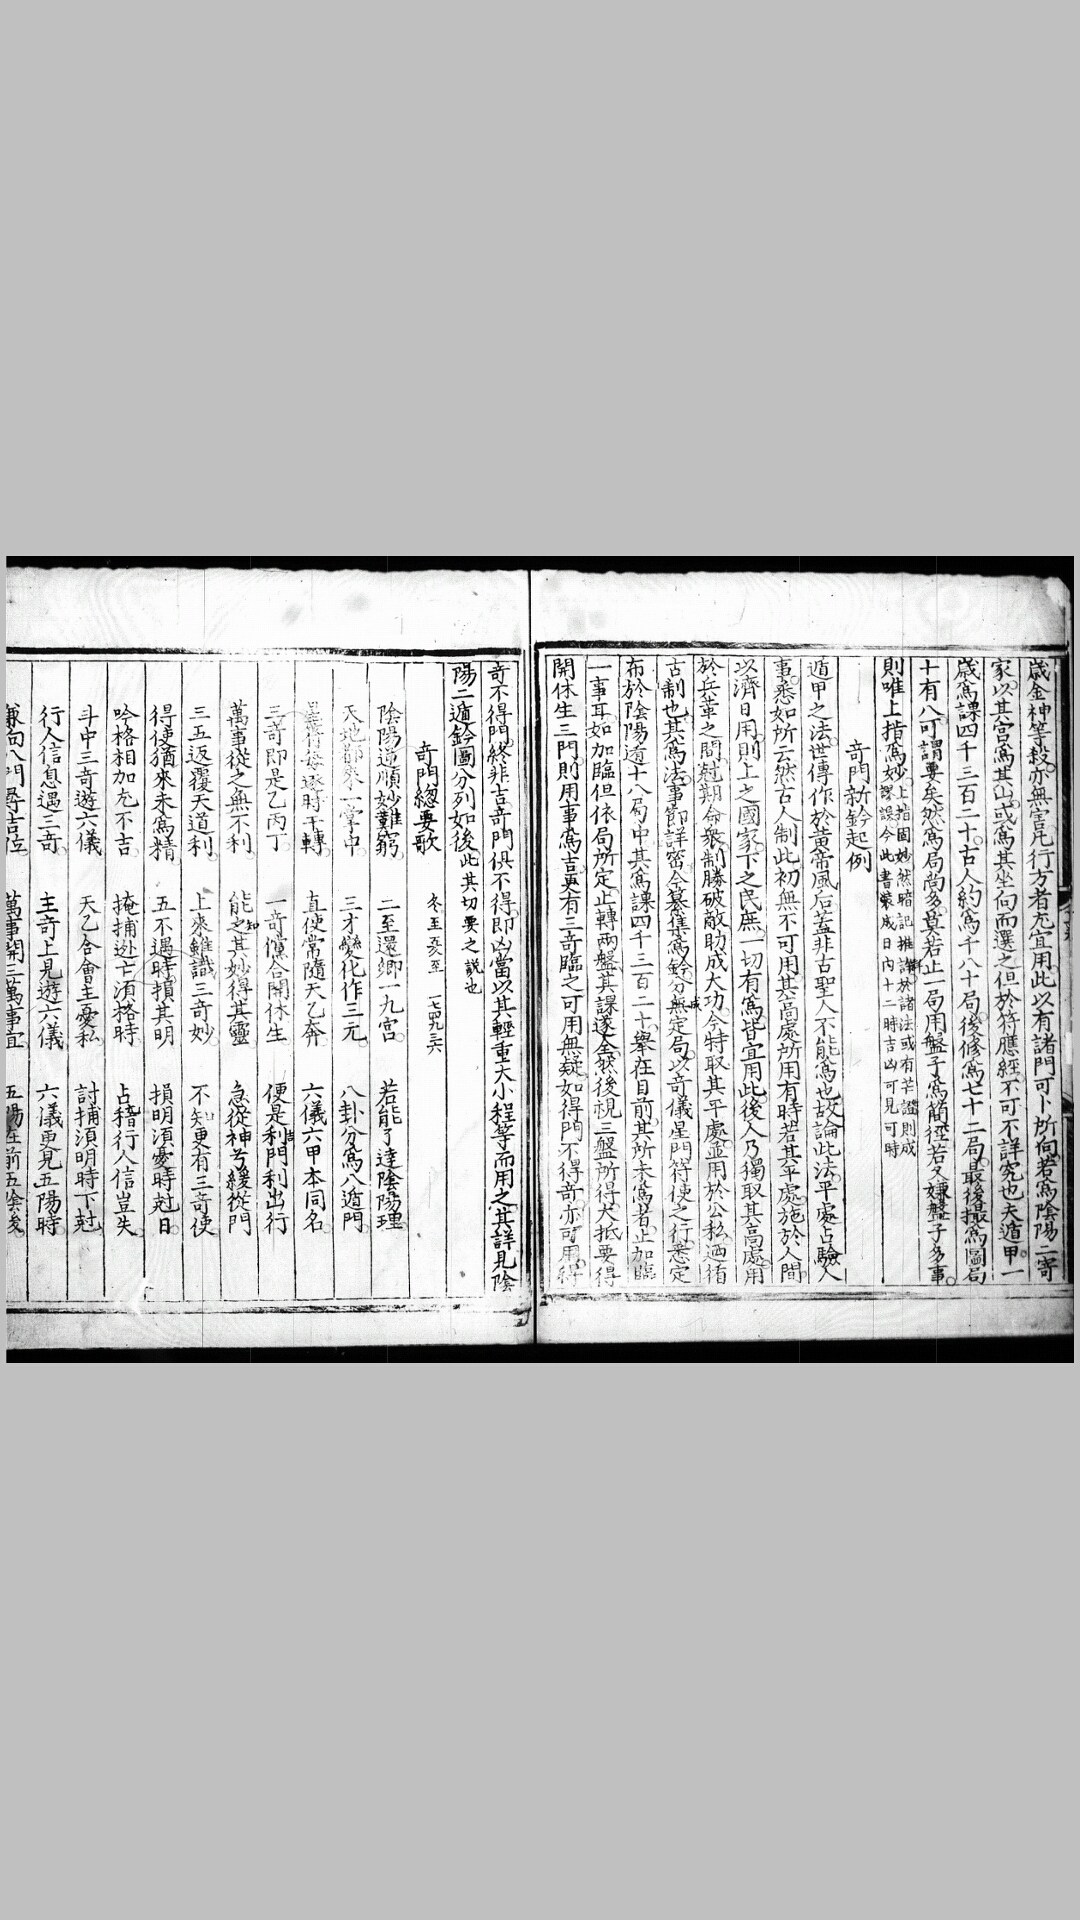 歲金神等殺亦無害凡行方者尤宜用此以有諸門可卜所向若為陰陽二寄
家以其宮為其山或為其坐向而選之但於符應經不可不詳究也夫遁甲一
歲為課四千三百二十古人約為千八十局後修為七十二局最後撮為圖局
十有八可謂要矣然為局尚多莫若止一局用盤子為簡徑若又嫌盤子多事
則唯上指為妙上指固妙然暗記推詳於諸法或有芒謬則成
謬誤今此書裝成日內十二時吉凶可見可時
奇門新鈐起例
遁甲之法世傳作於黃帝風后蓋非古聖人不能為也故論此法平處占驗人
事悉如所云然古人制此初無不可用其高處所用有時若其平處施於人間
以濟日用則上之國家下之民庶一切有為皆宜用此後人乃獨取其高處用
於兵革之間尅期命衆制勝破敵助成大功今特取其平處並用於公私迺循
古制也其為法事節詳密今纂集為鈐分無定局以奇儀星門符使之行悉定
布於陰陽遁十八局中其為課四千三百二十舉在目前其所未為者止加臨
一事耳如加臨但依局所定止轉兩盤其課遂全然後視三盤所得大抵要得
開休生三門則用事為吉更有三奇臨之可用無疑如得門不得奇亦可用得
奇不得門終非吉奇門俱不得即凶當以其輕重大小程等而用之其詳見陰
陽二遁鈐圖分列如後此其切要之說也
奇門總要歌 冬至
陰陽逆順妙難窮 二至還鄉一九宮 若能了達陰陽理
天地都來一掌中 三才變化作三元 八卦分為八遁門
時干轉 直使常隨天乙奔 六儀六甲本同名
三奇即是乙丙丁 一奇儻合開休生 便是吉門利出行
萬事從之無不利 能知其妙得其靈 急從神兮緩從門
三五返覆天道利 上來雖識三奇妙 不知更有三奇使
得使猶來未為精 五不遇時損其明 損明須憂時尅日
吟格相加尤不吉 掩捕逃亡須格時 占稽行人信豈失
斗中三奇遊六儀 天乙合會主憂私 討捕須明時下尅
行人信息遇三奇 主奇上見遊六儀 六儀更見五陽時
兼向八門尋吉位 萬事開三萬事宜 五陽在前五陰後